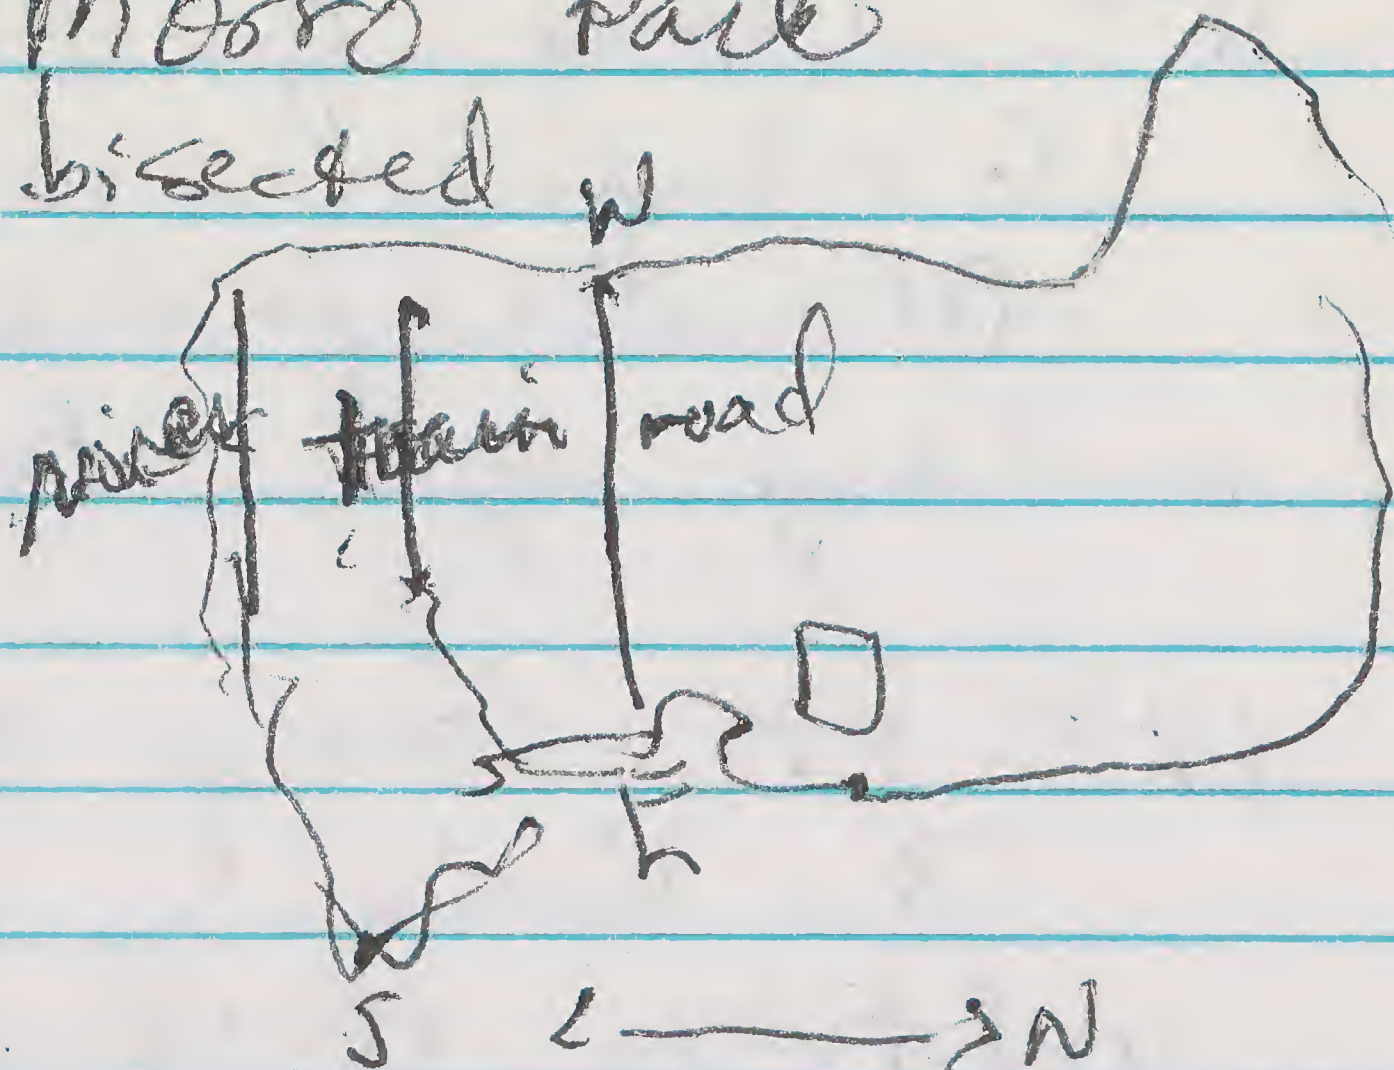 Morro Park
bisected
W
river train road
S N